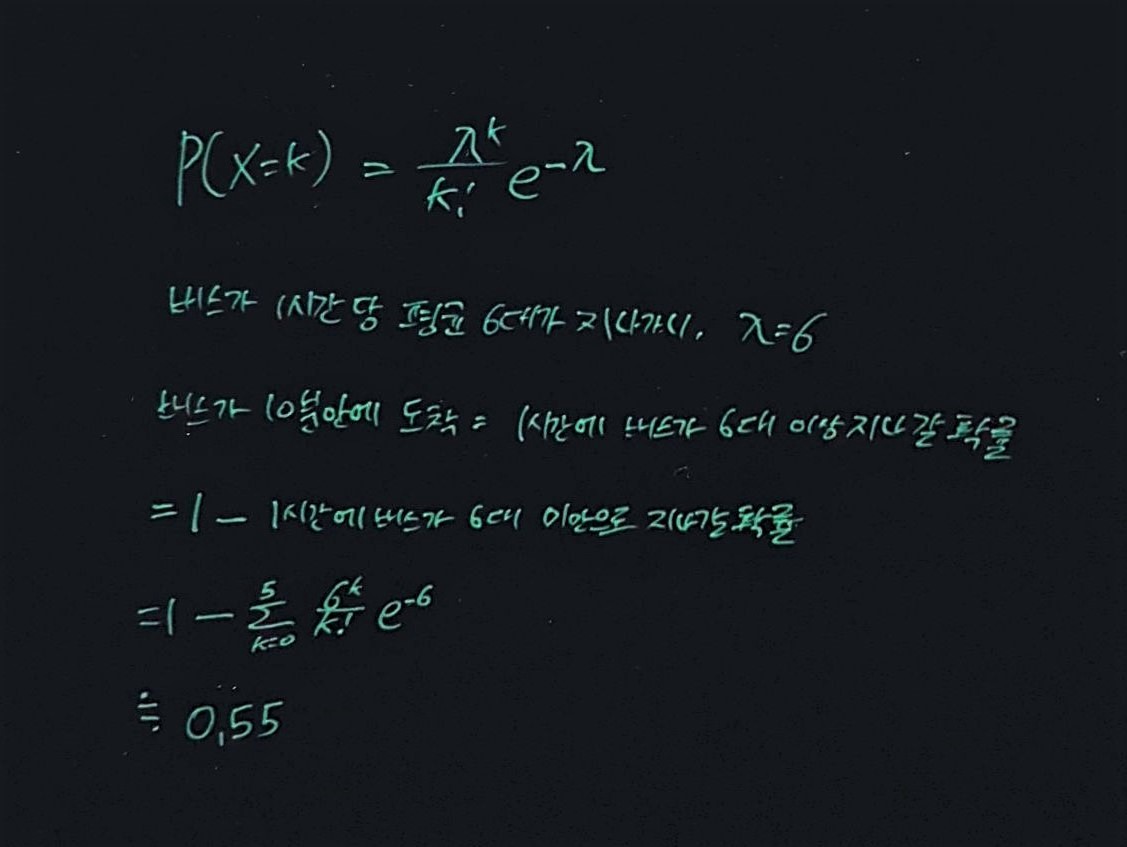 P(X=k) = λ^k/k! e^-λ
버스가 1시간 당 평균 6대가 지나가니, λ=6
버스가 10분안에 도착 = 1시간에 버스가 6대 이상 지나갈 확률
=1 - 1시간에 버스가 6대 미만으로 지나갈 확률
=1 - Σ_{k=0}^{5} 6^k/k! e^-6
≒ 0.55